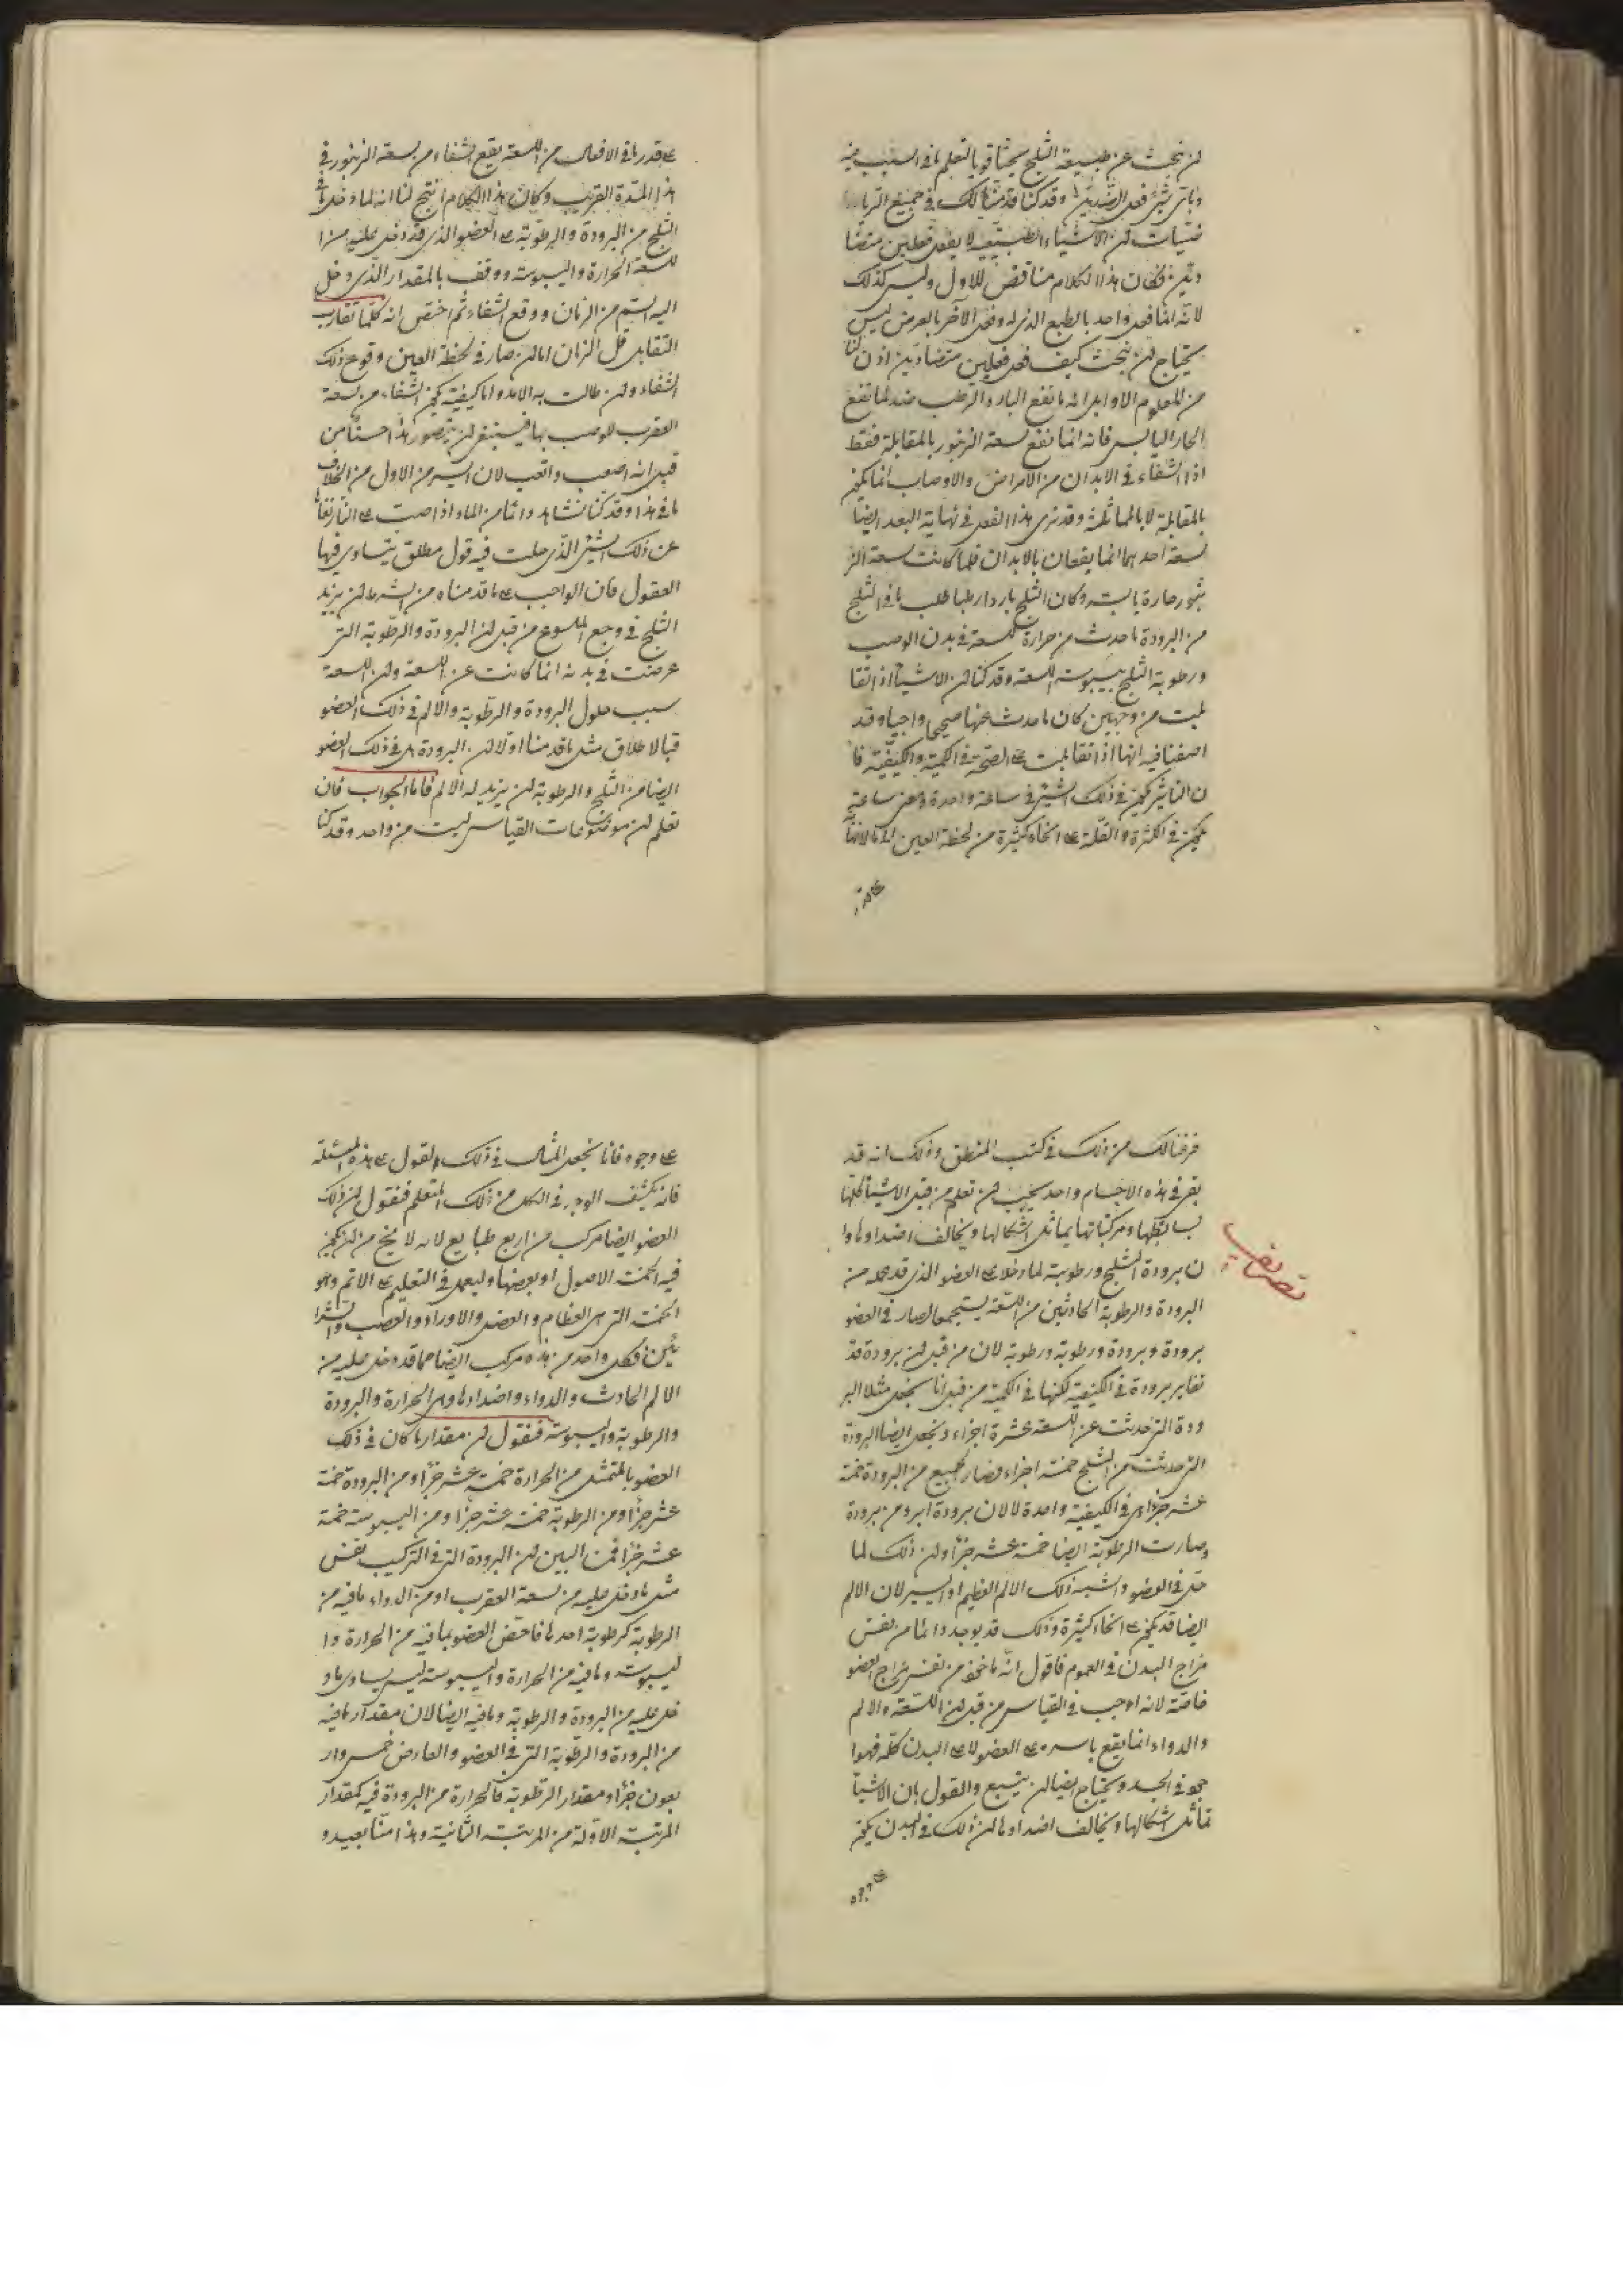 لن نبحث عن طبيعة الثلج بحثا قويا لتعلم ما في السبب فيه
وباى شئ فعل الضدين وقد كنا قدمنا لك في جميع الريا
ضيات لن الاشياء الطبيعية لا يفعل فعلين متضا
دين فكان هذا الكلام مناقض للاول وليس كذلك
لانه انما فعل واحد بالطبع الذى له وفعل الآخر بالعرض ليس
يحتاج لن نبحث كيف فعل فعلين متضادين اذن لنا
من المعلوم الاوايل انه ما نفع البارد الرطب ضد لما نفع
الحار اليابس فانه انما نفع لسعة الزنبور بالمقابلة فقط
اذا الشفاء في الابدان من الامراض والاوصاب انما يكون
بالمقابلة لا بالمماثلة وقد نرى هذا الفعل في نهاية البعد ايضا
لسعة احدهما انما يقعان بالابدان فلما كانت لسعة الز
نبور حارة يابسة وكان الثلج باردا رطبا طلب ما في الثلج
من البرودة ما حدث من حرارة اللسعة في بدن الوصب
ورطوبة الثلج يبوسة اللسعة وقد كنا لن الاشياء اذا تقا
بلت من وجهين كان ما حدث عنها صحيحا واجبا وقد
اضفنا فيه انها اذا تقابلت على الصحة في الكمية والكيفية فا
ن التاثير يكون في ذلك الشئ في ساعة واحدة وعن ساعة
يكون في الكثرة والقلة على انحاء كثيرة من لحظة العين الى ما لا نهاية
على قدر
على قدر ما في الافعال من اللسعة يقع الشفاء من لسعة الزنبور في
هذا المدة القريب وكان هذا الكلام انتج لنا انه لما دخل ما في
الثلج من البرودة والرطوبة على العضو الذى قد دخل عليه من ا
للسعة الحرارة واليبوسة ووقف بالمقدار الذى دخل
اليه السم من الزمان ووقع الشفاء ثم اختص انه كلما تقارب
التقابل قل الزمان اما لن صار في لحظة العين وقوع ذلك
الشفاء ولن طالت به الامد واما كيفية يكون الشفاء من لسعة
العقرب للوصب بها فينبغي لن يتصور هذا حسنا من
قبل انه اصعب واتعب لان اليسير من الاول من الخلاف
ما في هذا وقد كنا نشاهد دائما من الماء اذا صب على النار تقا
عن ذلك الشئ الذى حلت فيه قول مطلق يتساوى فيها
العقول فان الواجب على ما قدمناه من الشرط لن يزيد
الثلج في وجع الملسوع من قبل لن البرودة والرطوبة التى
عرضت في بدنه انما كانت عن اللسعة ولن اللسعة
سبب حلول البرودة والرطوبة والالم في ذلك العضو
فبالاطلاق مثل ما قدمنا اولا لن البرودة هى في ذلك العضو
ايضا من الثلج والرطوبة لن يزيد له الالم فاما الجواب فان
تعلم لن موضوعات القياس ليست من واحد وقد كنا
فرضنا لك من ذلك في كتب المنطق وذلك انه قد
بقى في هذه الاجسام واحد يجب لن تعلم من قبل الاشياء كلها
بسايطها ومركباتها يماثل اشكالها ويخالف اضدادها وا
ن برودة الثلج ورطوبته لما دخلا على العضو الذى قد عمله من
البرودة والرطوبة الحادثين من اللسعة يستجمعا لصار في العضو
برودة وبرودة ورطوبة ورطوبة لان من قبل لن برودة قد
تغاير برودة في الكيفية لكنها في الكمية من قبل انا نجعل مثلا البر
ودة التى حدثت عن اللسعة عشرة اجزاء ونجعل ايضا البرودة
التى حدثت من الثلج خمسة اجزاء فصار الجميع من البرودة خمسة
عشر جزءا هى في الكيفية واحدة لا لان برودة ابرد من برودة
وصارت الرطوبة ايضا خمسة عشر جزءا ولن ذلك لما
حل في العضو واشبه ذلك الالم العظيم او اليسير لان الالم
ايضا قد يكون على انحاء كثيرة وذلك قد يوجد دائما من نفس
مزاج البدن في العموم فاقول انه مأخوذ من نفس مزاج العضو
خاصة لانه اوجب في القياس من قبل لن اللسعة والالم
والدواء انما يقع باسره على العضو لا على البدن كله فهوا
جود في الجسد ويحتاج ايضا لن يتبع والقول بان الاشيا
تماثل اشكالها وتخالف اضدادها لن ذلك في البدن يكون
على وجوه
تضايف
على وجوه فانا نجعل المثال في ذلك والقول على هذه المسئلة
فانه يكشف الوجه في الكل من ذلك المتعلم فنقول لن ذلك
العضو ايضا مركب من اربع طبايع لانه لا نخ من لن يكون
فيه الخمسة الاصول او بعضها وليعمل في التعليم على الاتم وهو
الخمسة التى هى العظام والعضل والاوراد والعصب والشرا
يين فكل واحد من هذه مركب ايضا مما قد دخل عليه من
الالم الحادث والدواء واضدادها وهى الحرارة والبرودة
والرطوبة واليبوسة فنقول لن مقدار ما كان في ذلك
العضو بالمتمثل من الحرارة خمسة عشر جزءا ومن البرودة خمسة
عشر جزءا ومن الرطوبة خمسة عشر جزءا ومن اليبوسة خمسة
عشر جزءا فمن البين لن البرودة التى في التركيب نفس
مثل ما دخل عليه من لسعة العقرب او من الدواء ما فيه من
الرطوبة كرطوبة احدها فاختص العضو بما فيه من الحرارة وا
ليبوسة وما فيه من الحرارة واليبوسة ليس يساوى ما د
خل عليه من البرودة والرطوبة وما فيه ايضا لان مقدار ما فيه
من البرودة والرطوبة التى في العضو والعارض خمس وار
بعون جزءا ومقدار الرطوبة فالحرارة من البرودة فيه كمقدار
المرتبة الاولة من المرتبة الثانية وهذا متا بعيد و